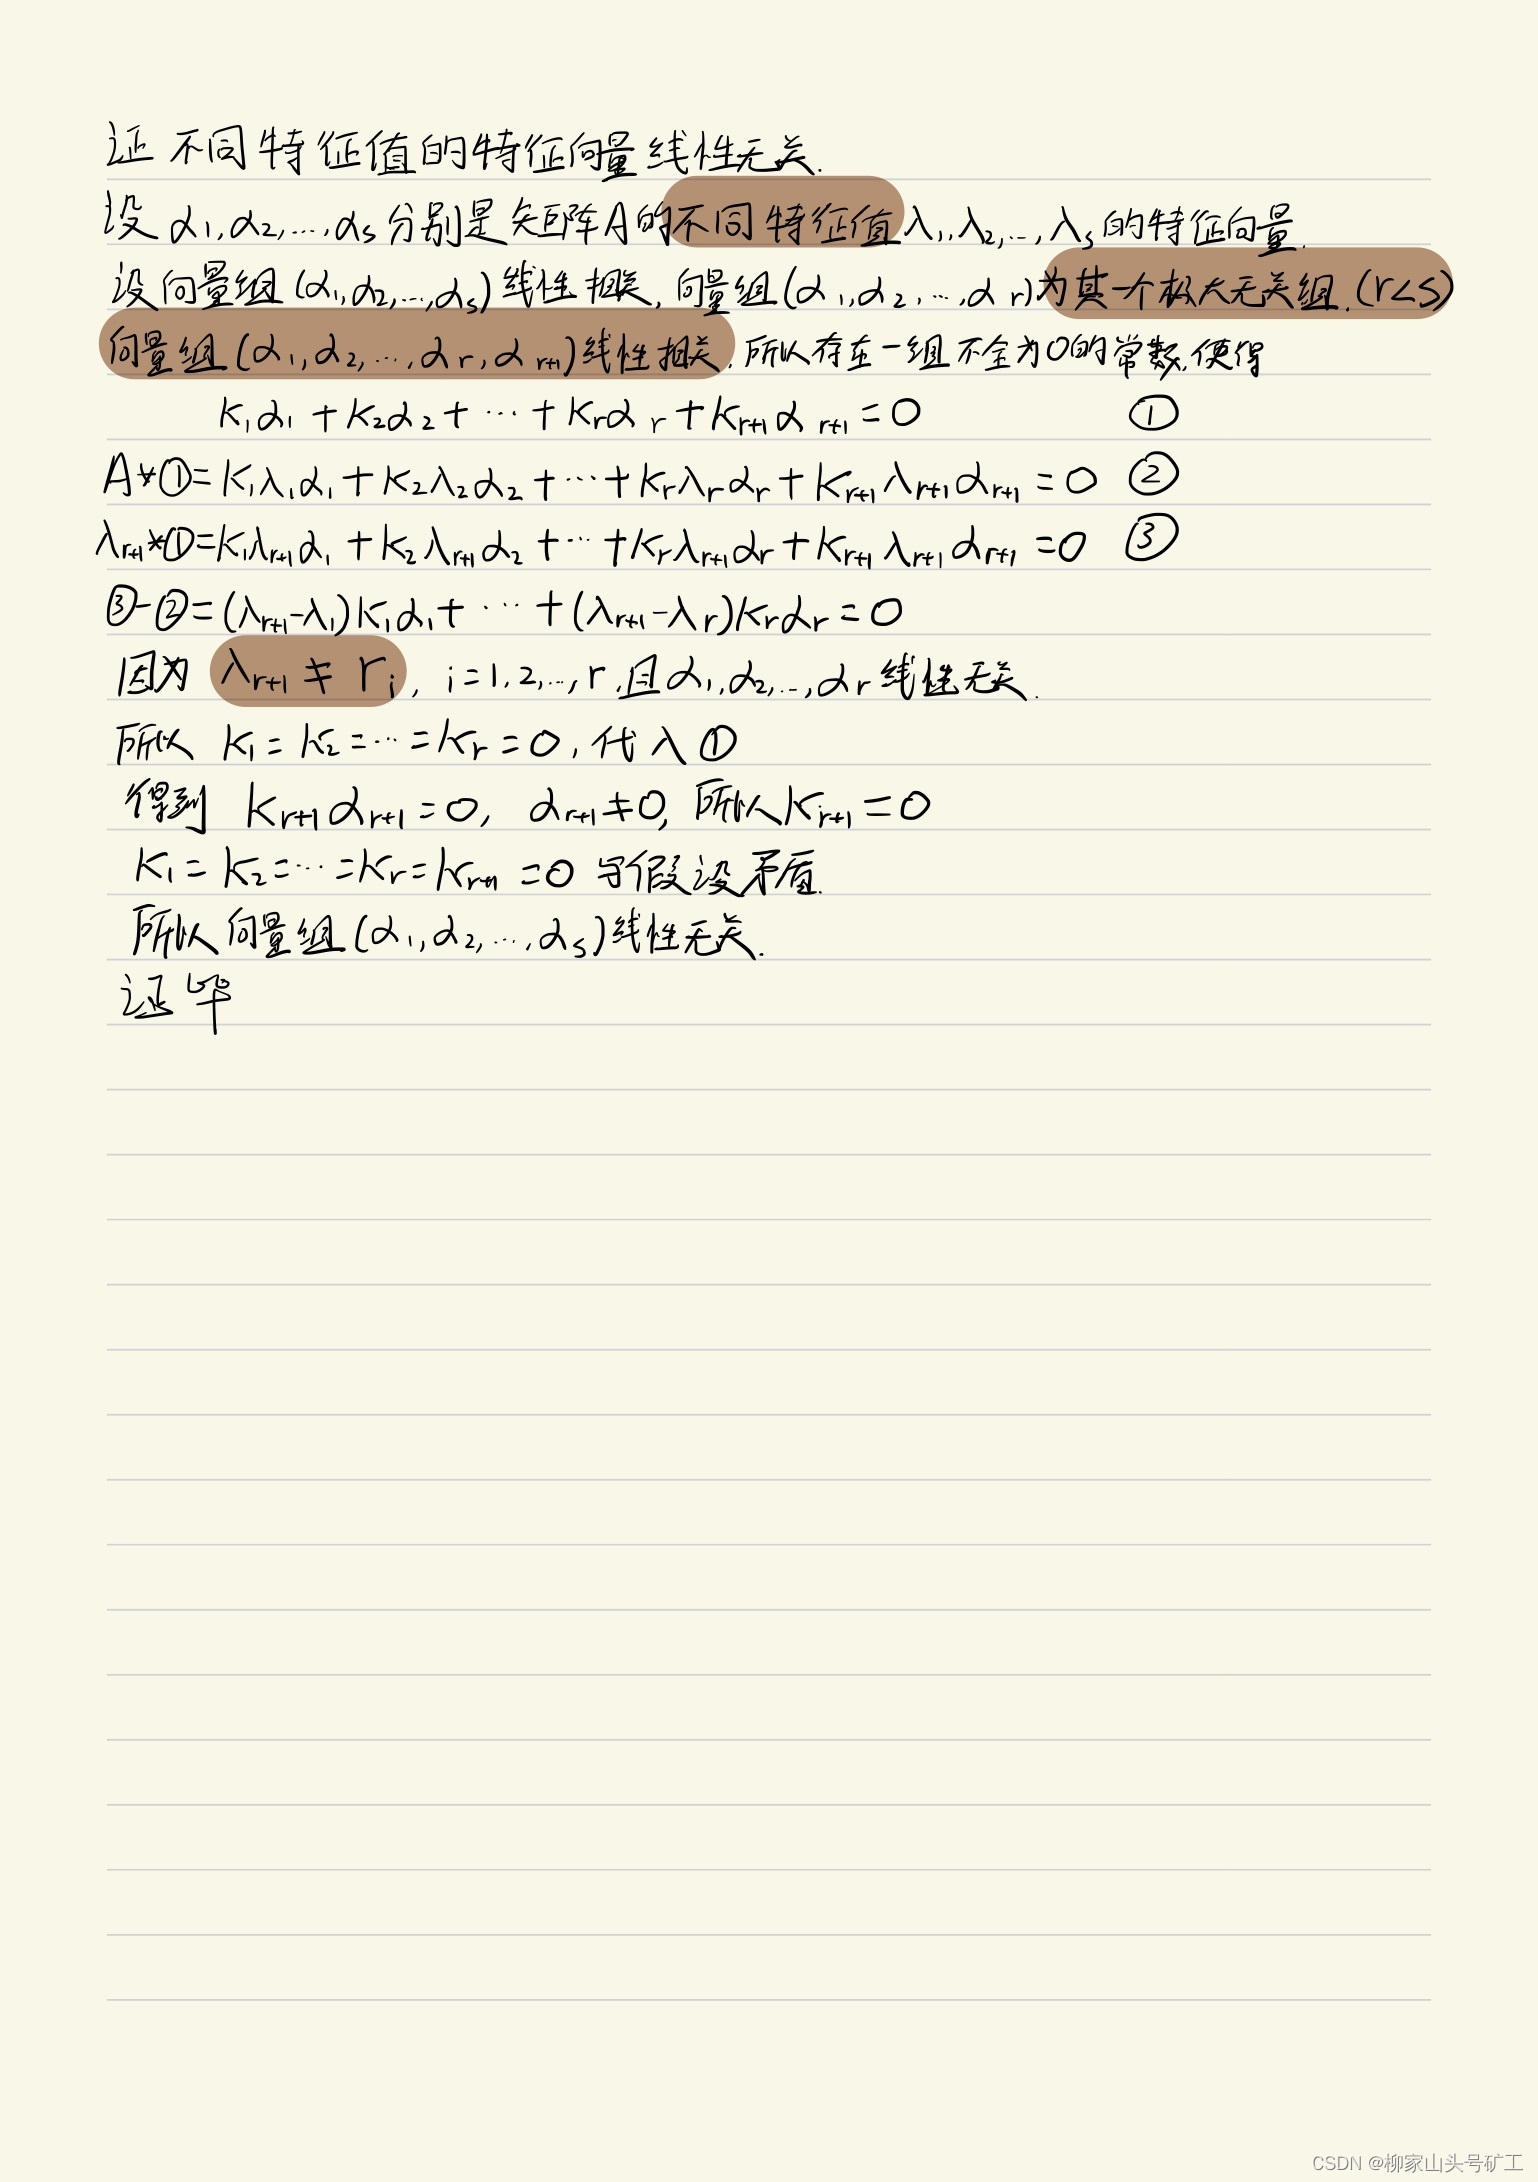 证 不同特征值的特征向量线性无关.
设 α₁,α₂,…,αₛ分别是矩阵A的不同特征值λ₁,λ₂,…,λₛ的特征向量.
设向量组(α₁,α₂,…,αₛ)线性相关,向量组(α₁,α₂,…,αᵣ)为其一个极大无关组.(r<s)
向量组(α₁,α₂,…,αᵣ,αᵣ₊₁)线性相关,所以存在一组不全为0的常数,使得
K₁α₁+K₂α₂+…+Kᵣαᵣ+Kᵣ₊₁αᵣ₊₁=0 ①
A*①=K₁λ₁α₁+K₂λ₂α₂+…+Kᵣλᵣαᵣ+Kᵣ₊₁λᵣ₊₁αᵣ₊₁=0 ②
λᵣ₊₁*①=K₁λᵣ₊₁α₁+K₂λᵣ₊₁α₂+…+Kᵣλᵣ₊₁αᵣ+Kᵣ₊₁λᵣ₊₁αᵣ₊₁=0 ③
③-②=(λᵣ₊₁-λ₁)K₁α₁+…+(λᵣ₊₁-λᵣ)Kᵣαᵣ=0
因为 λᵣ₊₁≠rᵢ, i=1,2,…,r,且α₁,α₂,…,αᵣ线性无关.
所以 K₁=K₂=…=Kᵣ=0,代入①
得到 Kᵣ₊₁αᵣ₊₁=0, αᵣ₊₁≠0,所以Kᵣ₊₁=0
K₁=K₂=…=Kᵣ=Kᵣ₊₁=0 与假设矛盾.
所以向量组(α₁,α₂,…,αₛ)线性无关.
证毕
CSDN @柳家山头号矿工